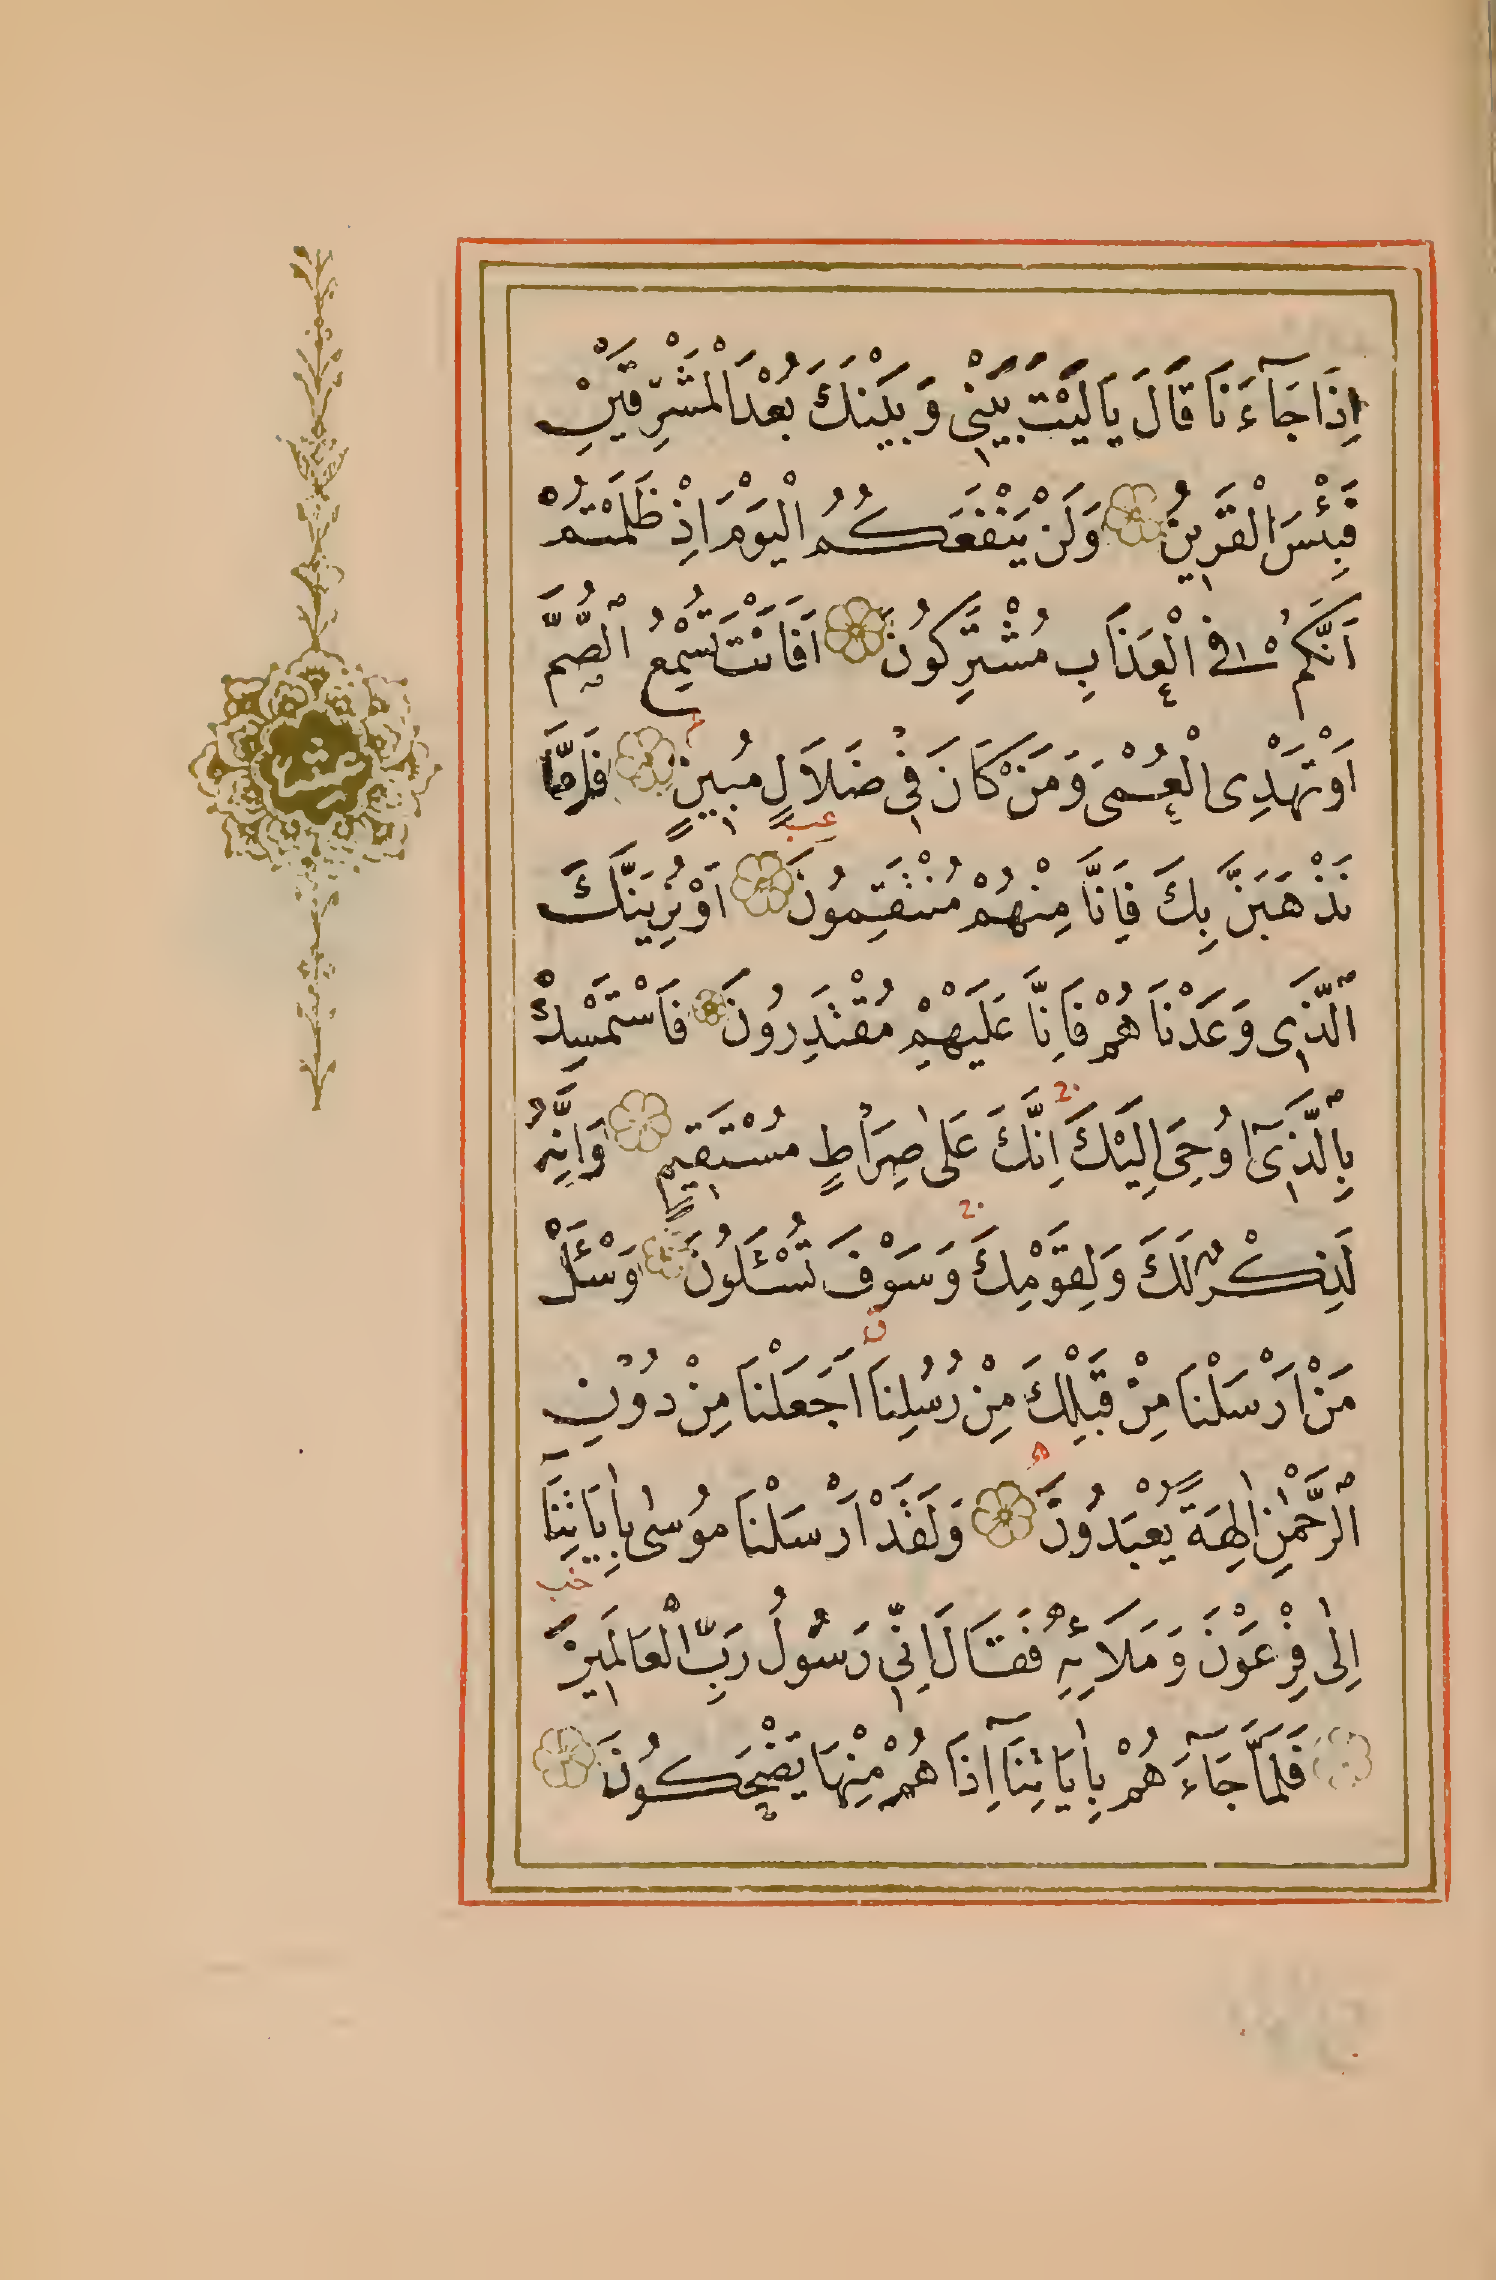 اِذَا جَآءَنَا قَالَ يَا لَيْتَ بَيْنِي وَبَيْنَكَ بُعْدَ الْمَشْرِقَيْنِ
فَبِئْسَ الْقَرِينُ وَلَنْ يَنْفَعَكُمُ الْيَوْمَ اِذْ ظَلَمْتُمْ
اَنَّكُمْ فِي الْعَذَابِ مُشْتَرِكُونَ اَفَاَنْتَ تُسْمِعُ الصُّمَّ
اَوْ تَهْدِى الْعُمْىَ وَمَنْ كَانَ فِي ضَلَالٍ مُبِينٍ فَاِمَّا
نَذْهَبَنَّ بِكَ فَاِنَّا مِنْهُمْ مُنْتَقِمُونَ اَوْ نُرِيَنَّكَ
الَّذِى وَعَدْنَاهُمْ فَاِنَّا عَلَيْهِمْ مُقْتَدِرُونَ فَاسْتَمْسِكْ
بِالَّذِىٓ اُوحِىَ اِلَيْكَ اِنَّكَ عَلٰى صِرَاطٍ مُسْتَقِيمٍ وَاِنَّهُ
لَذِكْرٌ لَكَ وَلِقَوْمِكَ وَسَوْفَ تُسْـَٔلُونَ وَسْـَٔلْ
مَنْ اَرْسَلْنَا مِنْ قَبْلِكَ مِنْ رُسُلِنَا اَجَعَلْنَا مِنْ دُونِ
الرَّحْمٰنِ اٰلِهَةً يُعْبَدُونَ وَلَقَدْ اَرْسَلْنَا مُوسٰى بِاٰيَاتِنَآ
اِلٰى فِرْعَوْنَ وَمَلَا۬ئِهِ فَقَالَ اِنِّي رَسُولُ رَبِّ الْعَالَمِينَ
فَلَمَّا جَآءَهُمْ بِاٰيَاتِنَآ اِذَا هُمْ مِنْهَا يَضْحَكُونَ